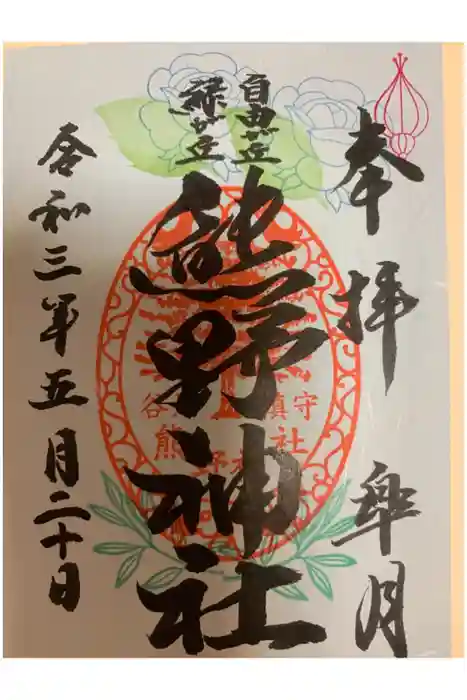 奉拝 皐月
自由が丘
緑が丘
熊野神社
令和三年五月二十日
谷 鎮守
熊野神社